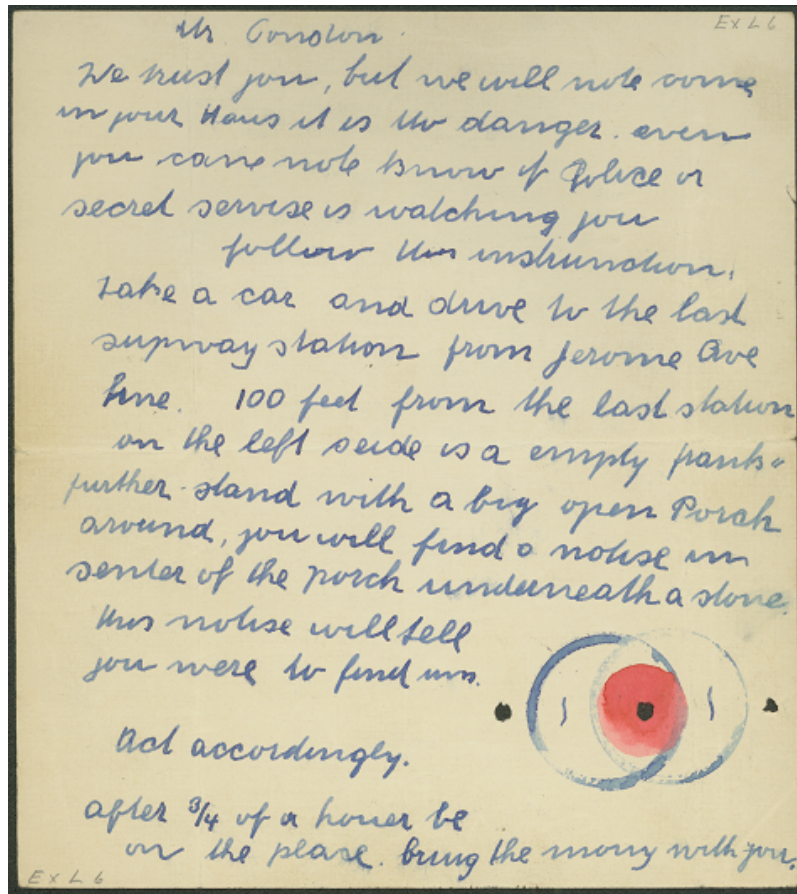 Ex L 6
Mr. Condon.
We trust you, but we will note come
in your Haus it is tho danger. even
you cane note know if Police or
secret servise is watching you
follow this instrunction.
take a car and drive to the last
supway station from Jerome Ave
line. 100 feet from the last station
on the left seide is a empty frank-
further-stand with a big open Porch
around, you will find a notise in
senter of the porch underneath a stone.
this notise will tell
you were to find uns.
Act accordingly.
after 3/4 of a houer be
on the place. bring the mony with you.
Ex L 6